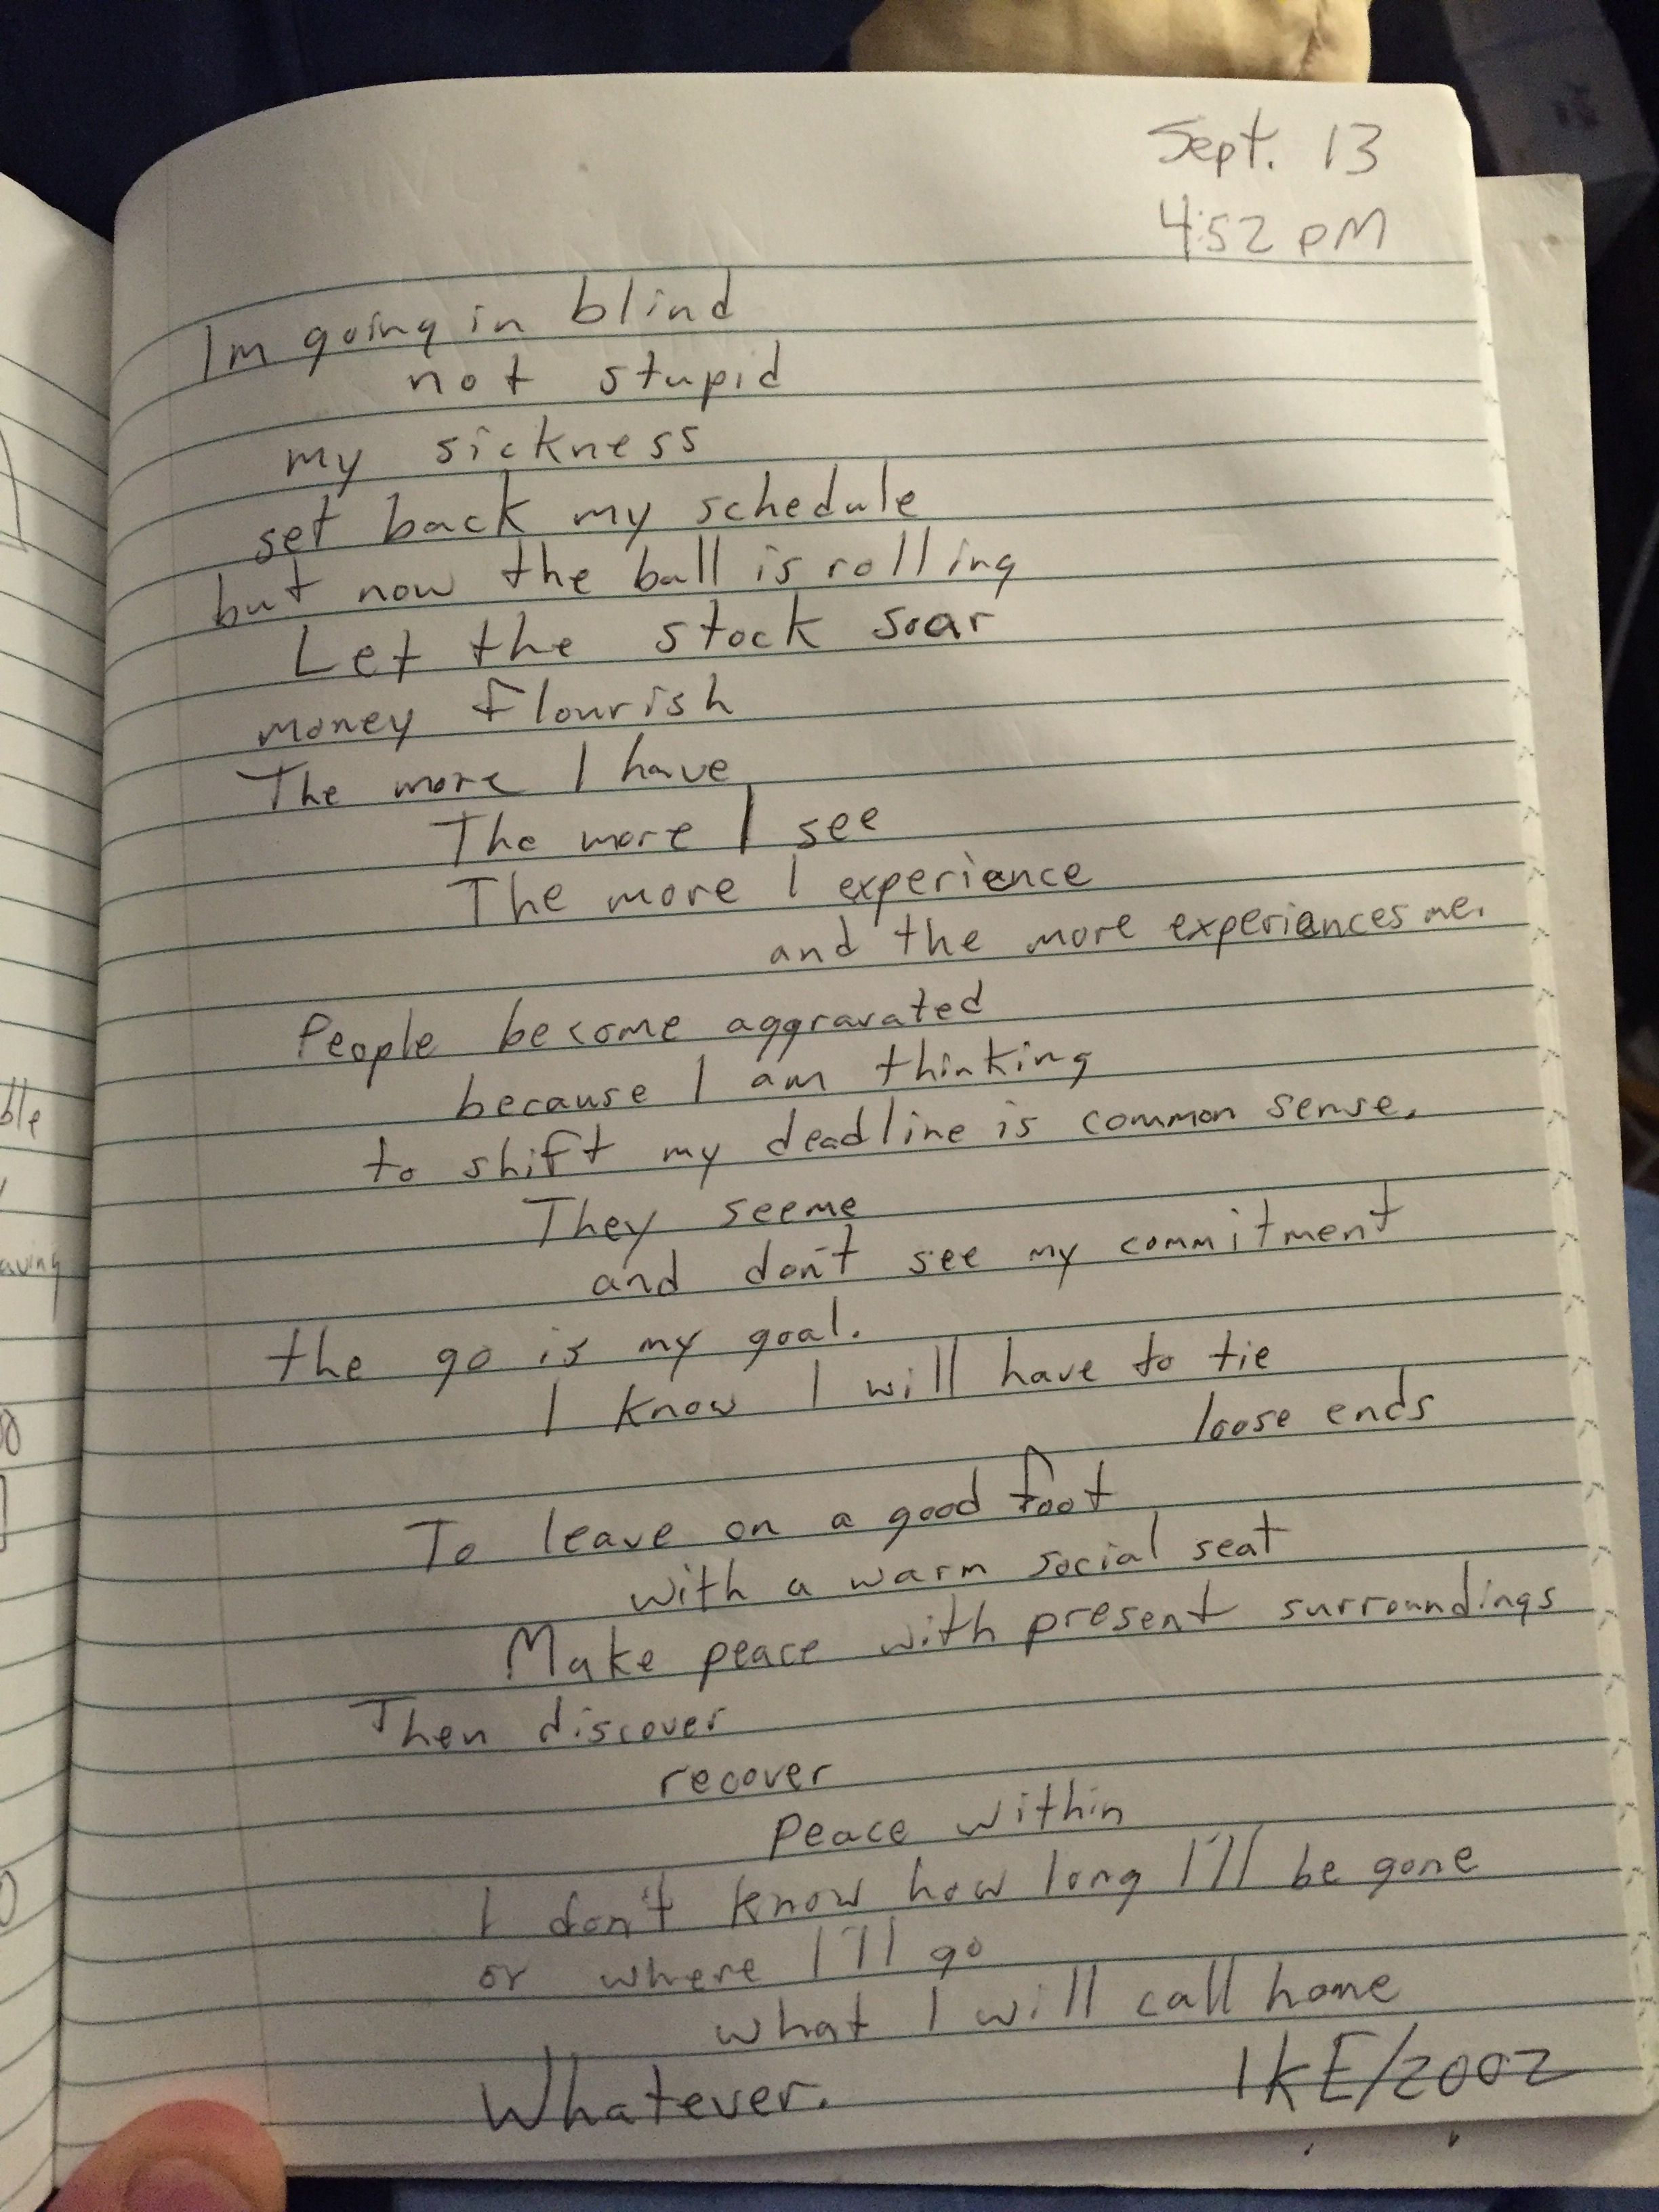 Sept. 13
4:52 PM
Im going in blind
not stupid
my sickness
set back my schedule
but now the ball is rolling
Let the stock soar
money flourish
The more I have
The more I see
The more I experience
and the more experiances me.
People become aggravated
because I am thinking
to shift my deadline is common sense.
They seeme
and don't see my commitment
the go is my goal.
I know I will have to tie
loose ends
To leave on a good foot
with a warm social seat
Make peace with present surroundings
Then discover
recover
Peace within
I don't know how long I'll be gone
or where I'll go
what I will call home
Whatever.
IKE/2002
ble
aving